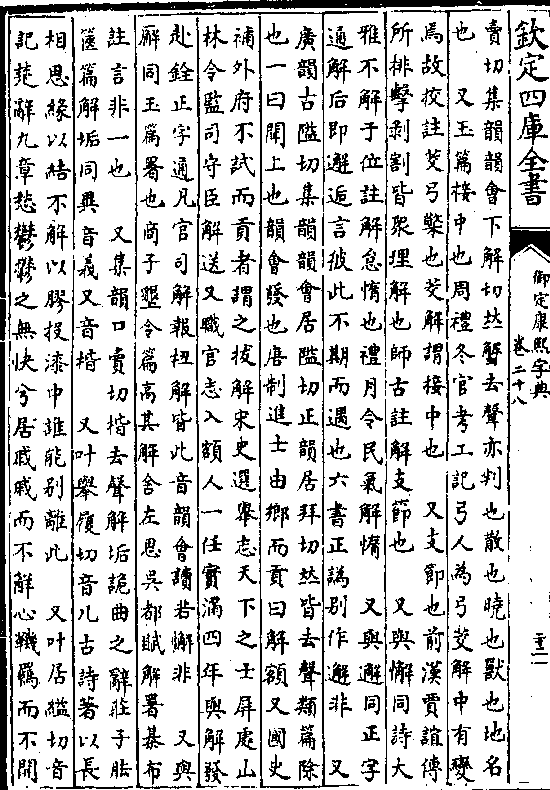 欽定四庫全書
御定康熙字典
卷二十八
賣切集韻韻會下解切𠀤蟹去聲亦判也散也曉也獸也地名
也　又玉篇接中也周禮冬官考工記弓人為弓茭解中有變
焉故挍註茭弓檠也茭解謂接中也　又支節也前漢賈誼傳
所排擊剥割皆衆理解也師古註解支節也　又與懈同詩大
雅不解于位註解怠惰也禮月令民氣解惰　又與邂同正字
通解后即邂逅言彼此不期而遇也六書正譌别作邂非　又
廣韻古隘切集韻韻會居隘切正韻居拜切𠀤皆去聲類篇除
也一曰聞上也韻會發也唐制進士由鄉而貢曰解額又國史
補外府不試而貢者謂之拔解宋史選舉志天下之士屏處山
林令監司守臣解送又職官志入額人一任實滿四年與解發
赴銓正字通凡官司解報杻解皆此音韻會讀若懈非　又與
廨同玉篇署也商子墾令篇高其解舍左思吳都賦解署棊布
註言非一也　又集韻口賣切楷去聲解垢詭曲之辭莊子胠
篋篇解垢同異音義又音楷　又叶舉履切音几古詩著以長
相思緣以結不解以膠投漆中誰能别離此　又叶居縊切音
記楚辭九章愁鬱鬱之無快兮居戚戚而不解心鞿羈而不開